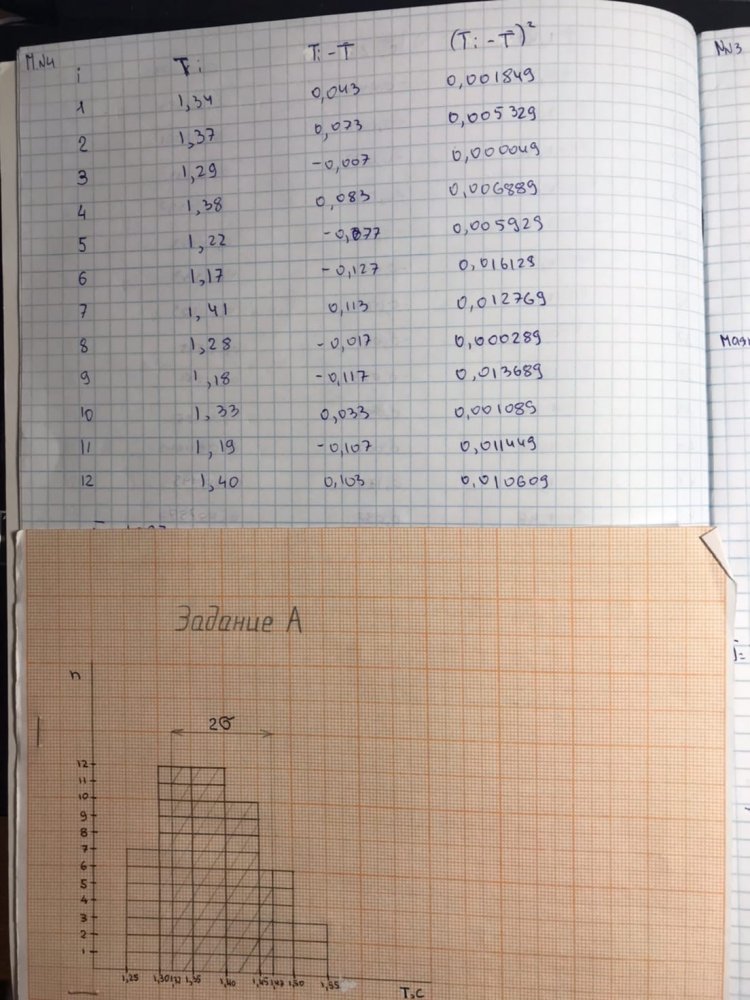 M.N4
i Ti Ti - T̅ (Ti - T̅)²
1 1,34 0,043 0,001849
2 1,37 0,073 0,005329
3 1,29 -0,007 0,000049
4 1,38 0,083 0,006889
5 1,22 -0,077 0,005929
6 1,17 -0,127 0,016129
7 1,41 0,113 0,012769
8 1,28 -0,017 0,000289
9 1,18 -0,117 0,013689
10 1,33 0,033 0,001089
11 1,19 -0,107 0,011449
12 1,40 0,103 0,010609
NN3
Маят
Задание А
n
2σ
12
11
10
9
8
7
6
5
4
3
2
1
1,25 1,30 1,32 1,35 1,40 1,45 1,47 1,50 1,55
T,c